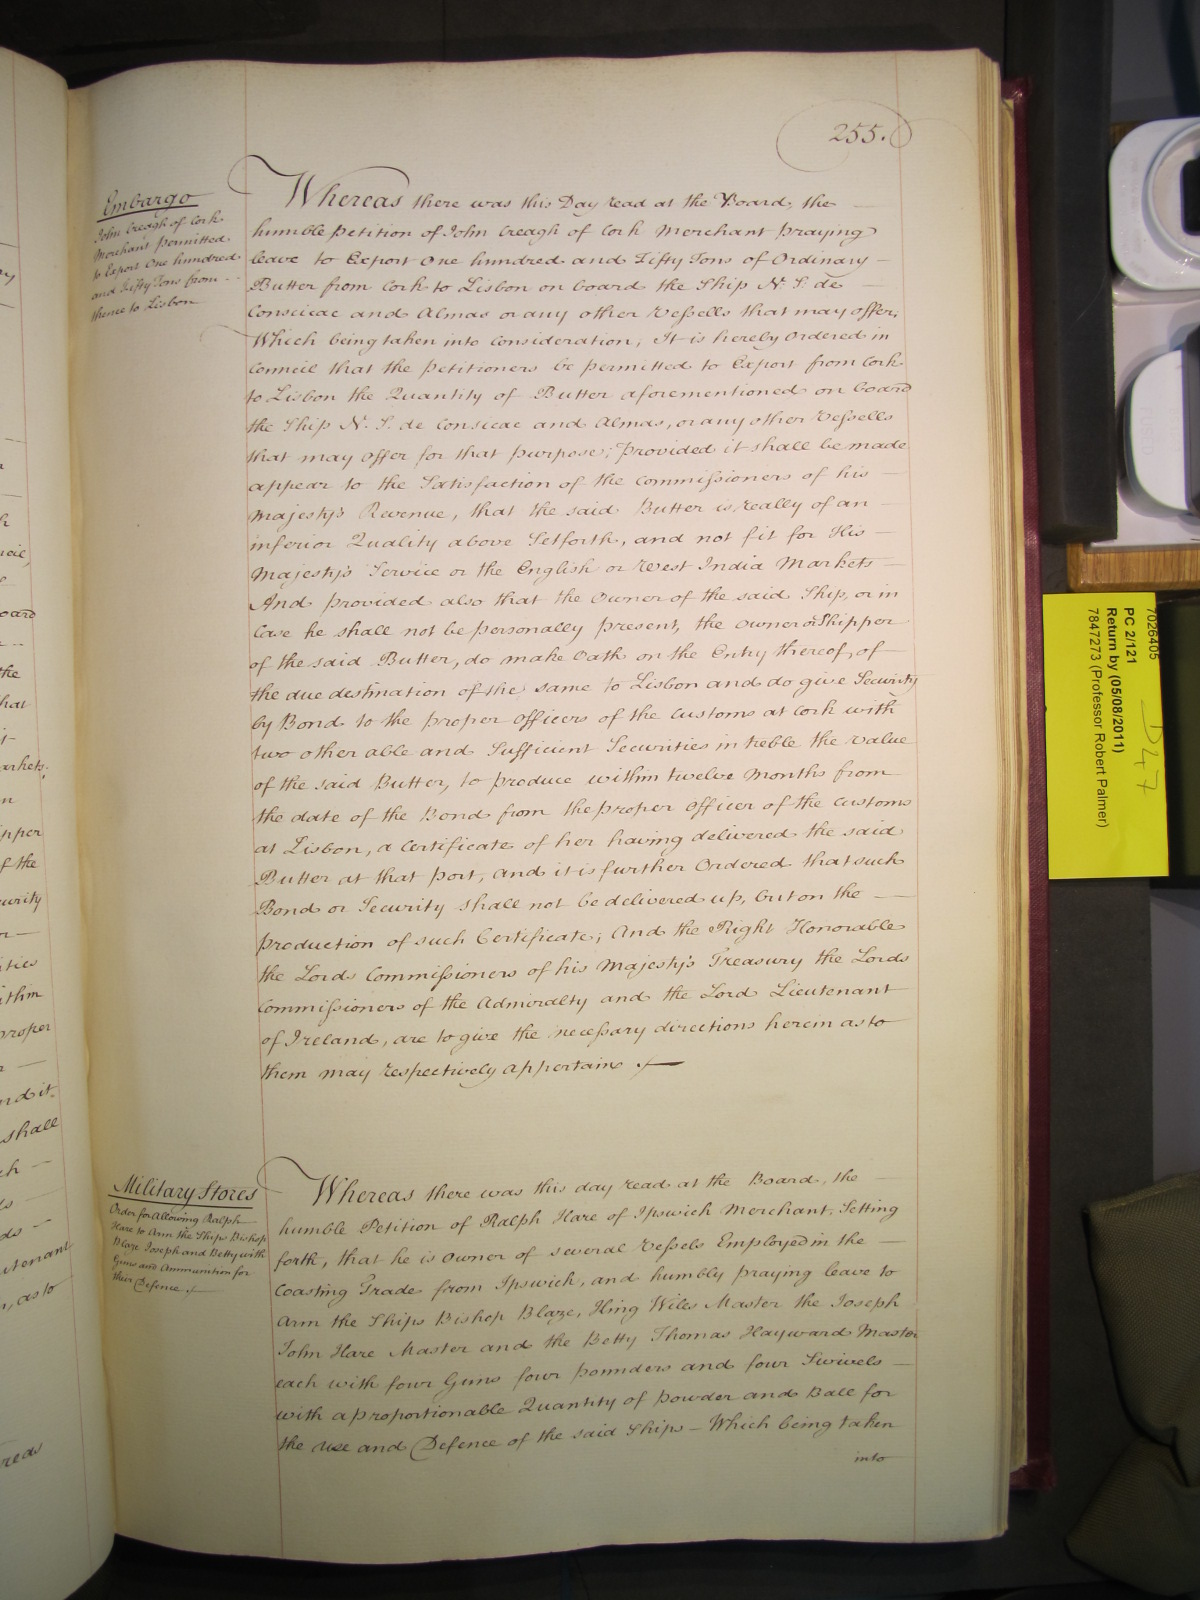 255.
Embargo
John Creagh of Cork
Merchant permitted
to Export One hundred
and Fifty Tons from
thence to Lisbon
Whereas there was this Day read at the Board, the
humble Petition of John Creagh of Cork Merchant praying
leave to Export One hundred and Fifty Tons of Ordinary
Butter from Cork to Lisbon on board the Ship N. S. de
Conseicae and Almas or any other Vessells that may offer,
Which being taken into Consideration, It is hereby Ordered in
Council that the Petitioners be permitted to Export from Cork
to Lisbon the Quantity of Butter aforementioned on board
the Ship N. S. de Conseicae and Almas, or any other Vessells
that may offer for that purpose; Provided it shall be made
appear to the Satisfaction of the Commissioners of his
Majesty's Revenue, that the said Butter is really of an
inferior Quality above Setforth, and not fit for His
Majesty's Service or the English or West India Markets
And provided also that the Owner of the said Ship, or in
Case he shall not be personally present, the Owner or Shipper
of the said Butter, do make Oath on the Entry thereof, of
the due destination of the same to Lisbon and do give Security
by Bond to the proper Officers of the Customs at Cork with
two other able and Sufficient Securities in treble the Value
of the said Butter, to produce within twelve Months from
the date of the Bond from the proper Officer of the Customs
at Lisbon, a Certificate of her having delivered the said
Butter at that port, and it is further Ordered that such
Bond or Security shall not be delivered up, but on the
production of such Certificate; And the Right Honorable
the Lords Commissioners of his Majesty's Treasury the Lords
Commissioners of the Admiralty and the Lord Lieutenant
of Ireland, are to give the necessary directions herein as to
them may respectively appertain
Military Stores
Order for Allowing Ralph
Hare to Arm the Ships Bishop
Blaze Joseph and Betty with
Guns and Ammunition for
their Defence
Whereas there was this day read at the Board, the
humble Petition of Ralph Hare of Ipswich Merchant, Setting
forth, that he is Owner of several Vessels Employed in the
Coasting Trade from Ipswich, and humbly praying leave to
Arm the Ships Bishop Blaze, Hing Wiles Master the Joseph
John Hare Master and the Betty Thomas Hayward Master
each with four Guns four pounders and four Swivels
with a proportionable Quantity of Powder and Ball for
the use and Defence of the said Ships – Which being taken
into
7026405
PC 2/121
Return by (05/08/2011)
7847273 (Professor Robert Palmer)
D47